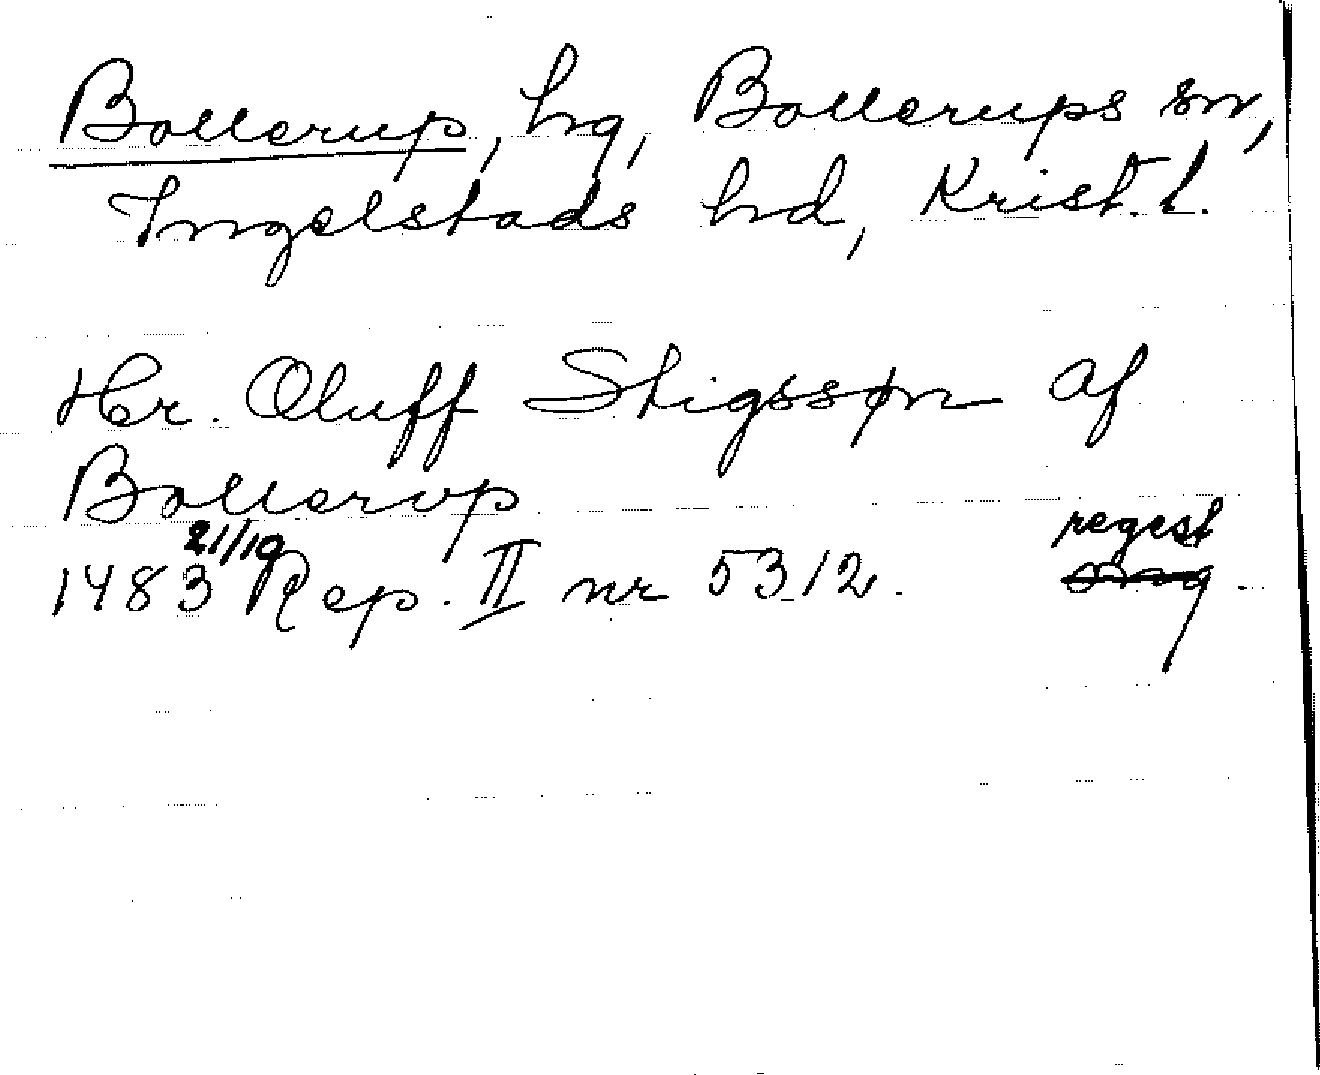 Bollerup, hg, Bollerups sn,
Ingelstads hd, Krist. l.
Hr. Oluff Stigssøn af
Bollerop
21/10 regest
1483 Rep. II nr 5312. omg.